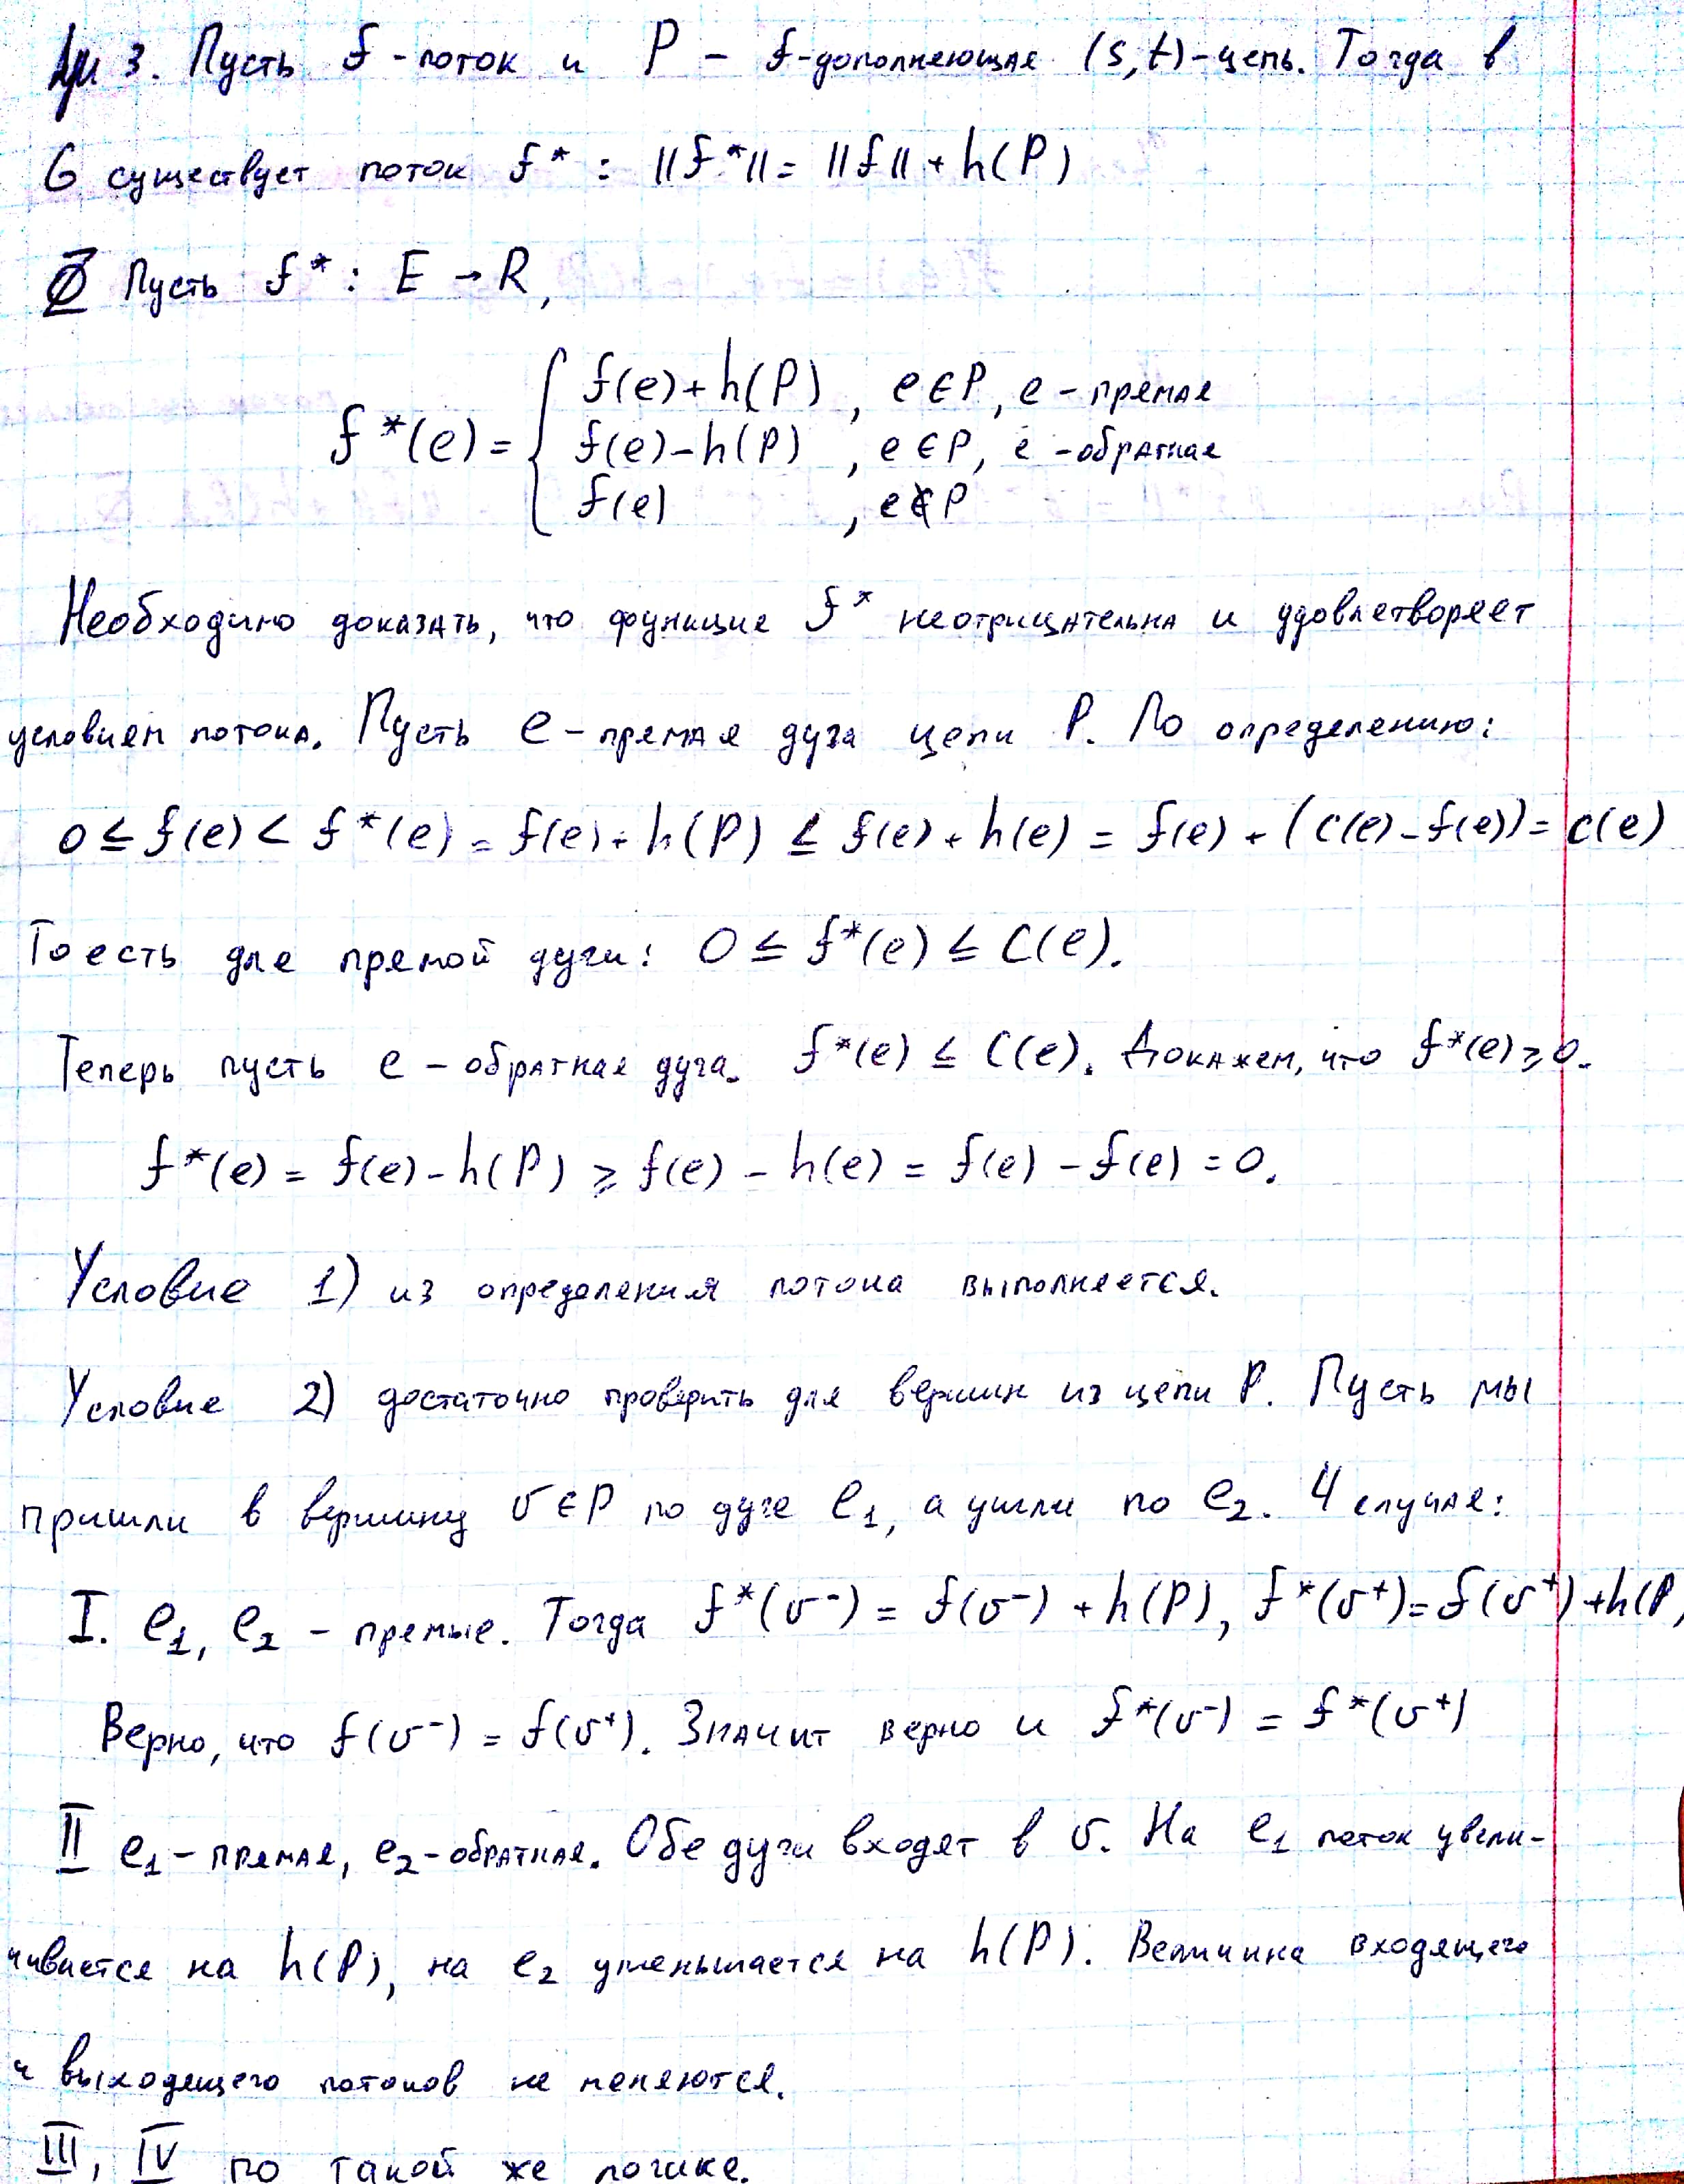 Лм 3. Пусть f - поток и P - f-дополняющая (s,t)-цепь. Тогда в
G существует поток f* : ||f*|| = ||f|| + h(P)
Пусть f* : E → R,
f(e)+h(P) , e ∈ P, e - прямая
f*(e) = { f(e)-h(P) , e ∈ P, e - обратная
f(e) , e ∉ P
Необходимо доказать, что функция f* неотрицательна и удовлетворяет
условиям потока. Пусть e - прямая дуга цепи P. По определению:
0 ≤ f(e) < f*(e) = f(e) + h(P) ≤ f(e) + h(e) = f(e) + (c(e) - f(e)) = c(e)
То есть для прямой дуги: 0 ≤ f*(e) ≤ C(e).
Теперь пусть e - обратная дуга. f*(e) ≤ C(e). Докажем, что f*(e) ≥ 0.
f*(e) = f(e) - h(P) ≥ f(e) - h(e) = f(e) - f(e) = 0.
Условие 1) из определения потока выполняется.
Условие 2) достаточно проверить для вершин из цепи P. Пусть мы
пришли в вершину v ∈ P по дуге e₁, а ушли по e₂. 4 случая:
I. e₁, e₂ - прямые. Тогда f*(v⁻) = f(v⁻) + h(P), f*(v⁺) = f(v⁺) + h(P)
Верно, что f(v⁻) = f(v⁺). Значит верно и f*(v⁻) = f*(v⁺)
II e₁ - прямая, e₂ - обратная. Обе дуги входят в v. На e₁ поток увели-
чивается на h(P), на e₂ уменьшается на h(P). Величина входящего
и выходящего потоков не меняются.
III, IV по такой же логике.